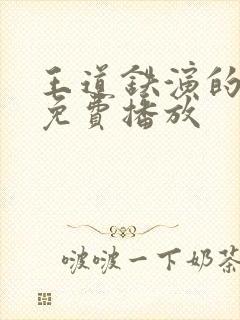 王道鉄演的
免費播放
啵啵一下奶茶